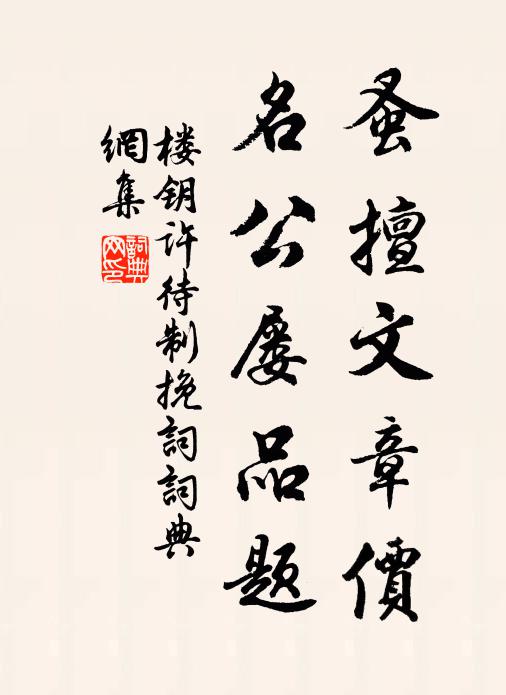 蚤擅文章價
名公屡品题
楼钥许待制挽詞詞典
網集
詞典网印